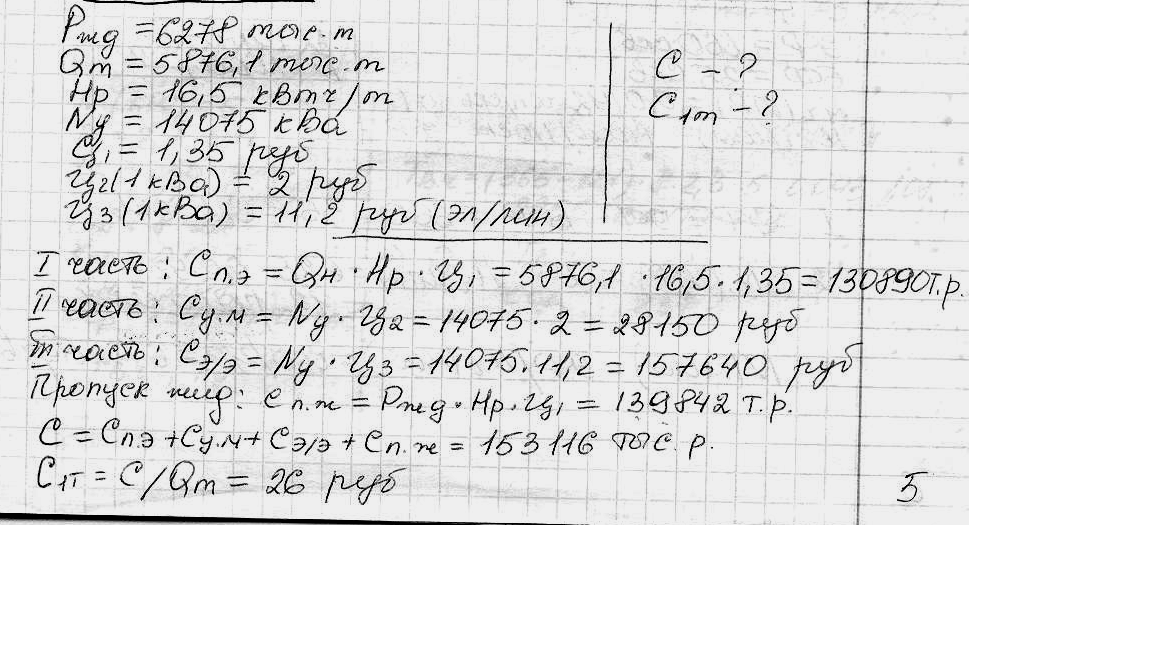 Pжд = 6278 тыс. т
Qт = 5876,1 тыс. т
Нр = 16,5 кВтч/т
Ny = 14075 кВа
Ц1 = 1,35 руб
Ц2 (1 кВа) = 2 руб
Ц3 (1 кВа) = 11,2 руб (эл/лин)
С – ?
С1т – ?
I часть: Сп.э = Qн · Нр · Ц1 = 5876,1 · 16,5 · 1,35 = 130890 т.р.
II часть: Су.м = Ny · Ц2 = 14075 · 2 = 28150 руб
III часть: Сэ/э = Ny · Ц3 = 14075 · 11,2 = 157640 руб
Пропуск жид: Сп.ж = Pжд · Нр · Ц1 = 139842 т.р.
С = Сп.э + Су.м + Сэ/э + Сп.ж = 153116 тыс. р.
С1т = С/Qт = 26 руб
5